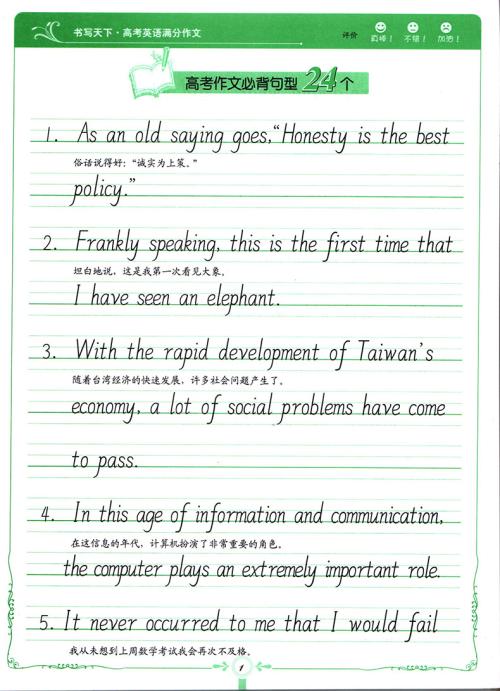 书写天下·高考英语满分作文
评价
真棒！ 不错！ 加油！
高考作文必背句型24个
1. As an old saying goes,"Honesty is the best
俗话说得好：“诚实为上策。”
policy."
2. Frankly speaking, this is the first time that
坦白地说，这是我第一次看见大象。
I have seen an elephant.
3. With the rapid development of Taiwan's
随着台湾经济的快速发展，许多社会问题产生了。
economy, a lot of social problems have come
to pass.
4. In this age of information and communication,
在这信息的年代，计算机扮演了非常重要的角色。
the computer plays an extremely important role.
5. It never occurred to me that I would fail
我从未想到上周数学考试我会再次不及格。
1